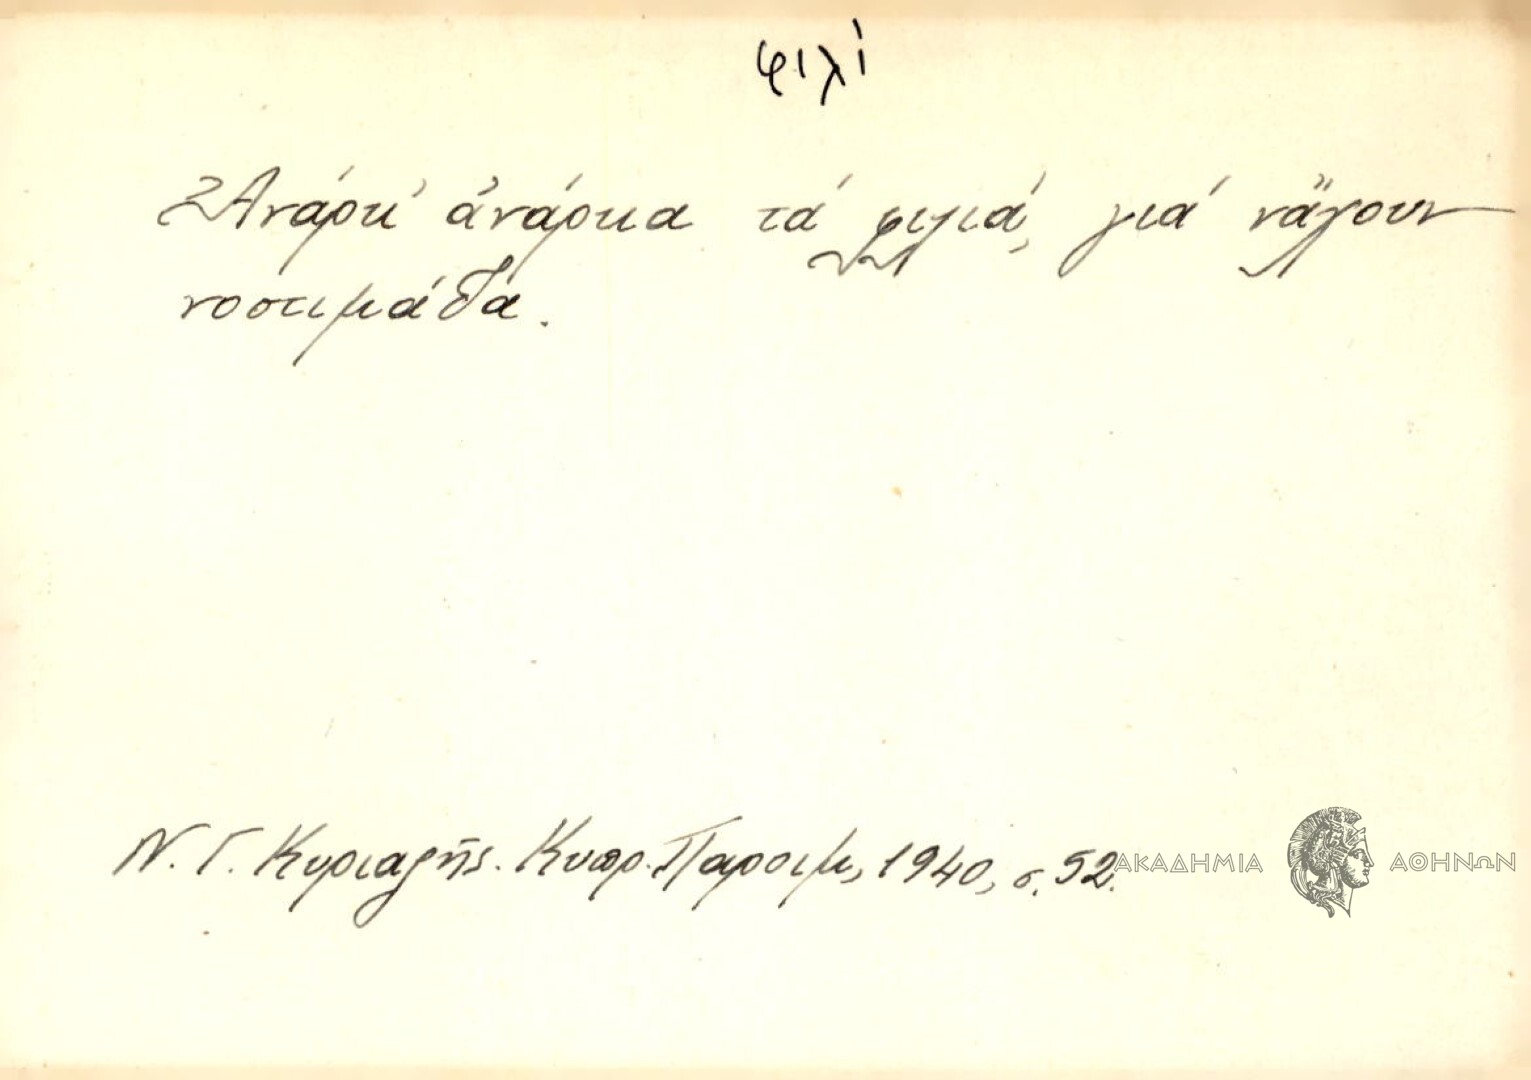 φιλί
Ἀνάρκ' ἀνάρκα τά φιλιά, γιά νἄχουν
νοστιμάδα.
Ν. Γ. Κυριαζῆς. Κυπρ. Παροιμ, 1940, σ. 52.
ΑΚΑΔΗΜΙΑ ΑΘΗΝΩΝ